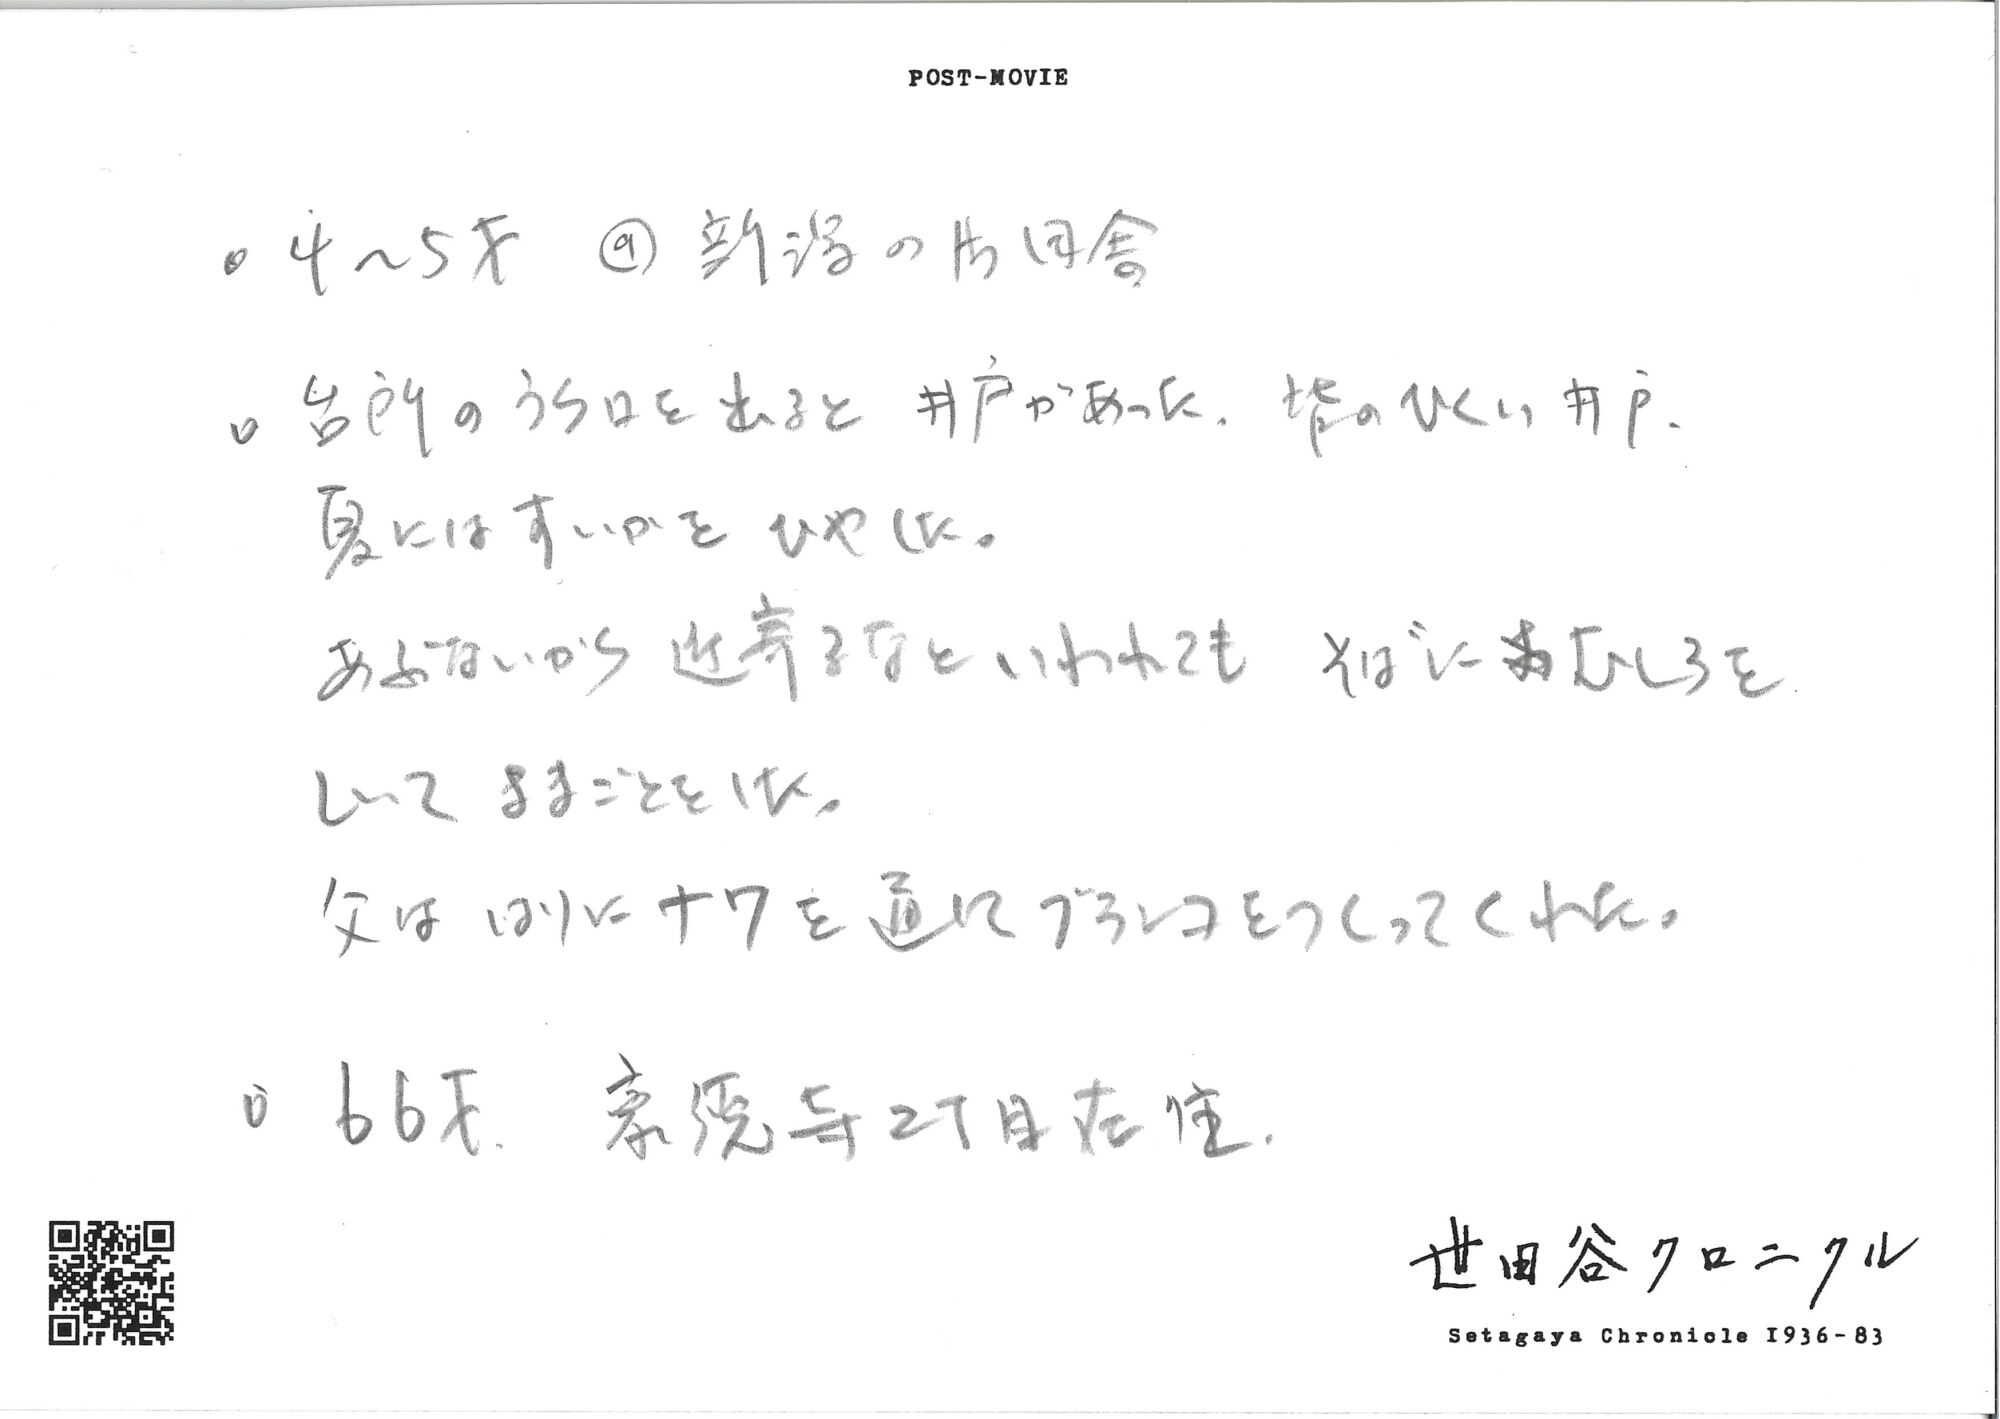 POST-MOVIE
• 4〜5才 @ 新潟の片田舎
• 台所のうら口を出ると 井戸があった. 背のひくい井戸.
夏にはすいかを ひやした。
あぶないから 近寄るなといわれても そばに むしろを
しいて ままごとをした。
父は はりにナワを通して ブランコをつくってくれた。
• 66才. 豪徳寺2丁目在住.
世田谷クロニクル
Setagaya Chronicle 1936-83